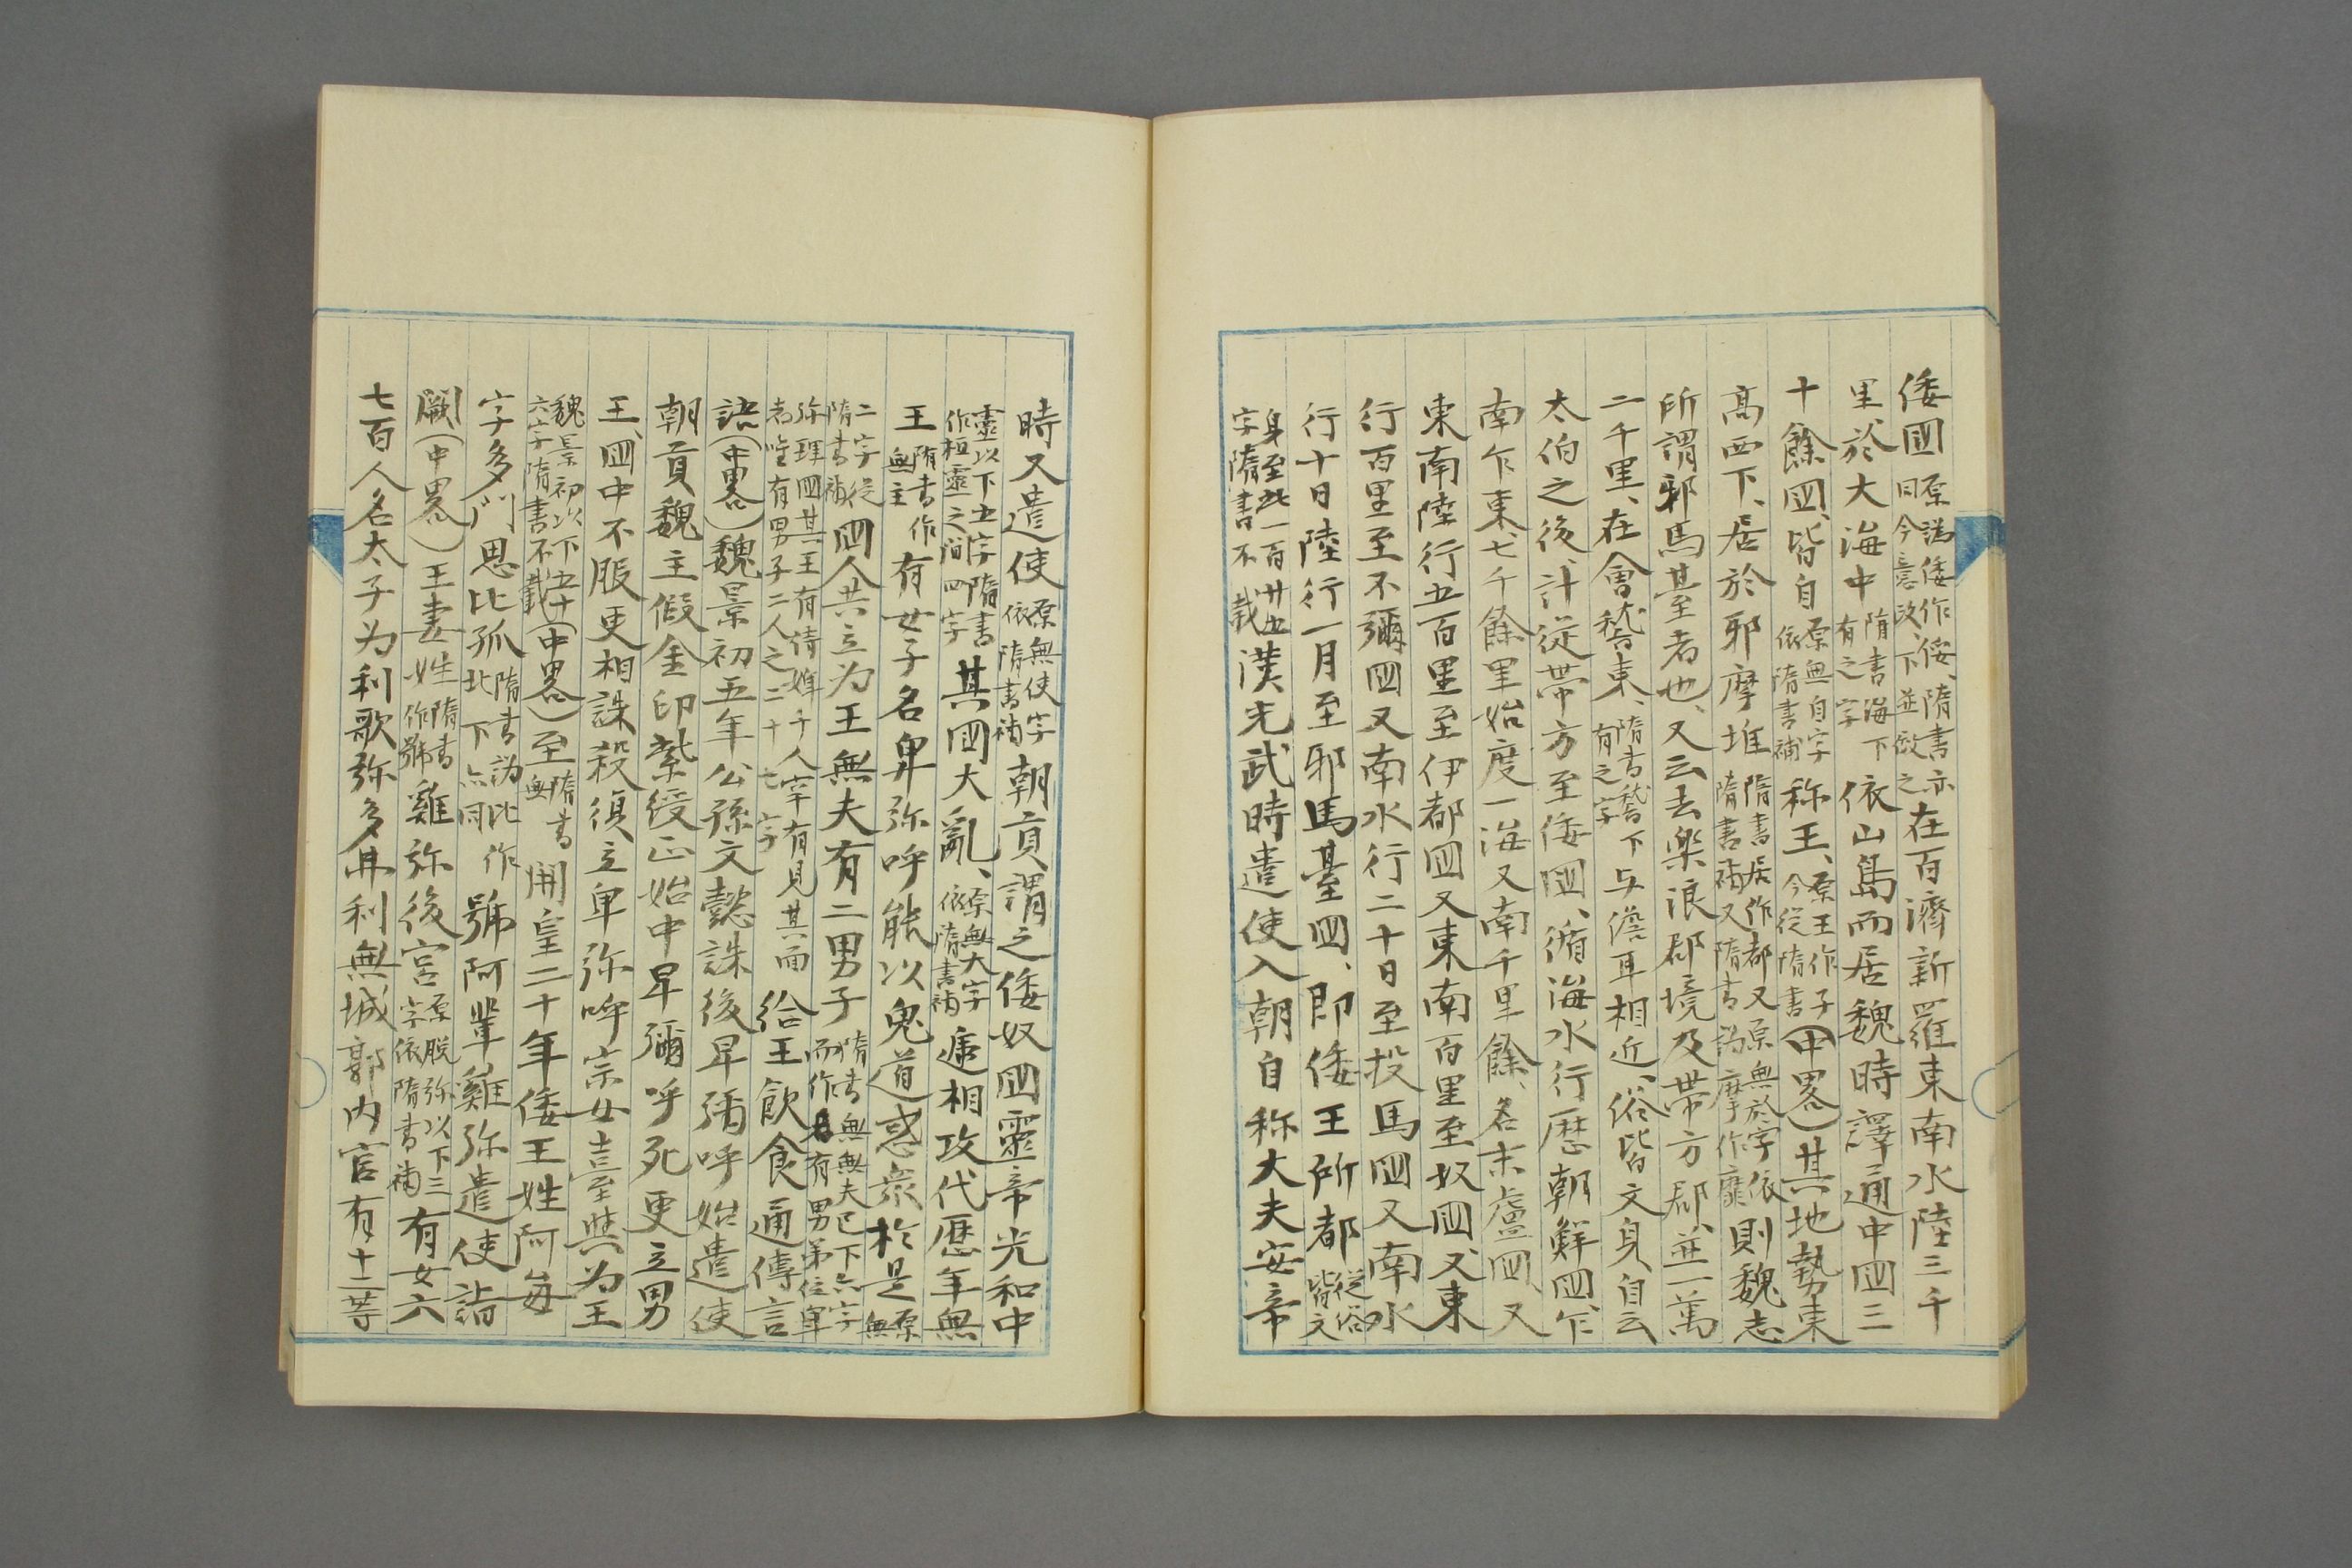 倭囯原譌倭作倭、隋書亦同今意改、下並傚之在百濟新羅東南水陸三千
里、於大海中隋書海下有之字依山島而居魏時譯通中囯三
十餘囯、皆自原無自字依隋書補称王、原王作子今従隋書(中畧)其地勢東
髙西下、居於邪摩堆隋書居作都又原無於字依隋書補又隋書譌摩作靡則魏志
所謂邪馬䑓者也、又云去楽浪郡境及帯方郡、並一萬
二千里、在會嵆東、隋書嵆下有之字与儋耳相近、俗皆文身、自云
太伯之後、計従帯方至倭囯、循海水行歴朝鮮囯、乍
南乍東、七千餘里始度一海又南千里餘、名末盧囯、又
東南陸行五百里至伊都囯又東南百里至奴囯又東
行百里至不彌囯又南水行二十日至投馬囯又南水
行十日陸行一月至邪馬䑓囯、即倭王所都従俗皆文
身至此一百廿五字隋書不載漢光武時遣使入朝自称大夫安帝
時又遣使原無使字依隋書補朝貢謂之倭奴囯靈帝光和中
靈以下五字隋書作桓靈之間四字其國大亂、原無大字依隋書補逓相攻代歴年無
王隋書作無主有女子名卑弥呼能以鬼道惑衆於是原無
二字従隋書補囯人共立为王無夫有二男子隋書無無夫已下六字而作名有男弟佐卑
弥理國其王有侍婢千人罕有見其面者唯有男子二人之二十七字給王飲食通傳言
語(中畧)魏景初五年公孫文懿誅後卑彌呼始遣使
朝貢魏主假金印紫綬正始中卑彌呼死更立男
王、囯中不服更相誅殺復立卑弥呼宗女臺與为王
魏景初以下五十六字隋書不載(中畧)至隋書無開皇二十年倭王姓阿毎
字多利思比孤隋書譌比作北下亦同號阿輩雞弥遣使詣
闕(中畧)王妻姓隋書作號雞弥後宮原脱弥以下三字依隋書補有女六
七百人名太子为利歌弥多弗利無城郭内官有十二等